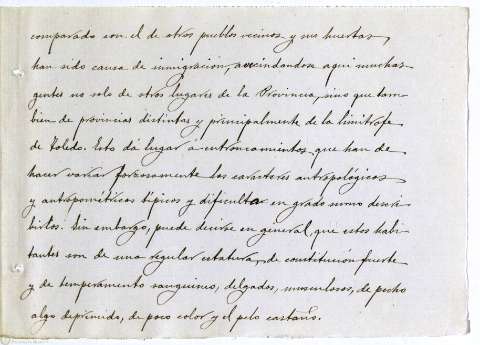 comparada con el de otros pueblos vecinos y sus huertas,
han sido causa de inmigración, avecindandose aqui muchas
gentes no solo de otros lugares de la Provincia, sino que tam
bien de provincias distintas y principalmente de la limitrofe
de Toledo. Esto dá lugar á entroncamientos que han de
hacer variar forzosamente los caracteres antropológicos
y antropométricos típicos y dificultar en grado sumo descri
birlos. Sin embargo, puede decirse en general, que estos habi
tantes son de una regular estatura, de constitución fuerte
y de temperamento sanguineo, delgados, musculosos, de pecho
algo deprimido, de poco color y el pelo castaño.